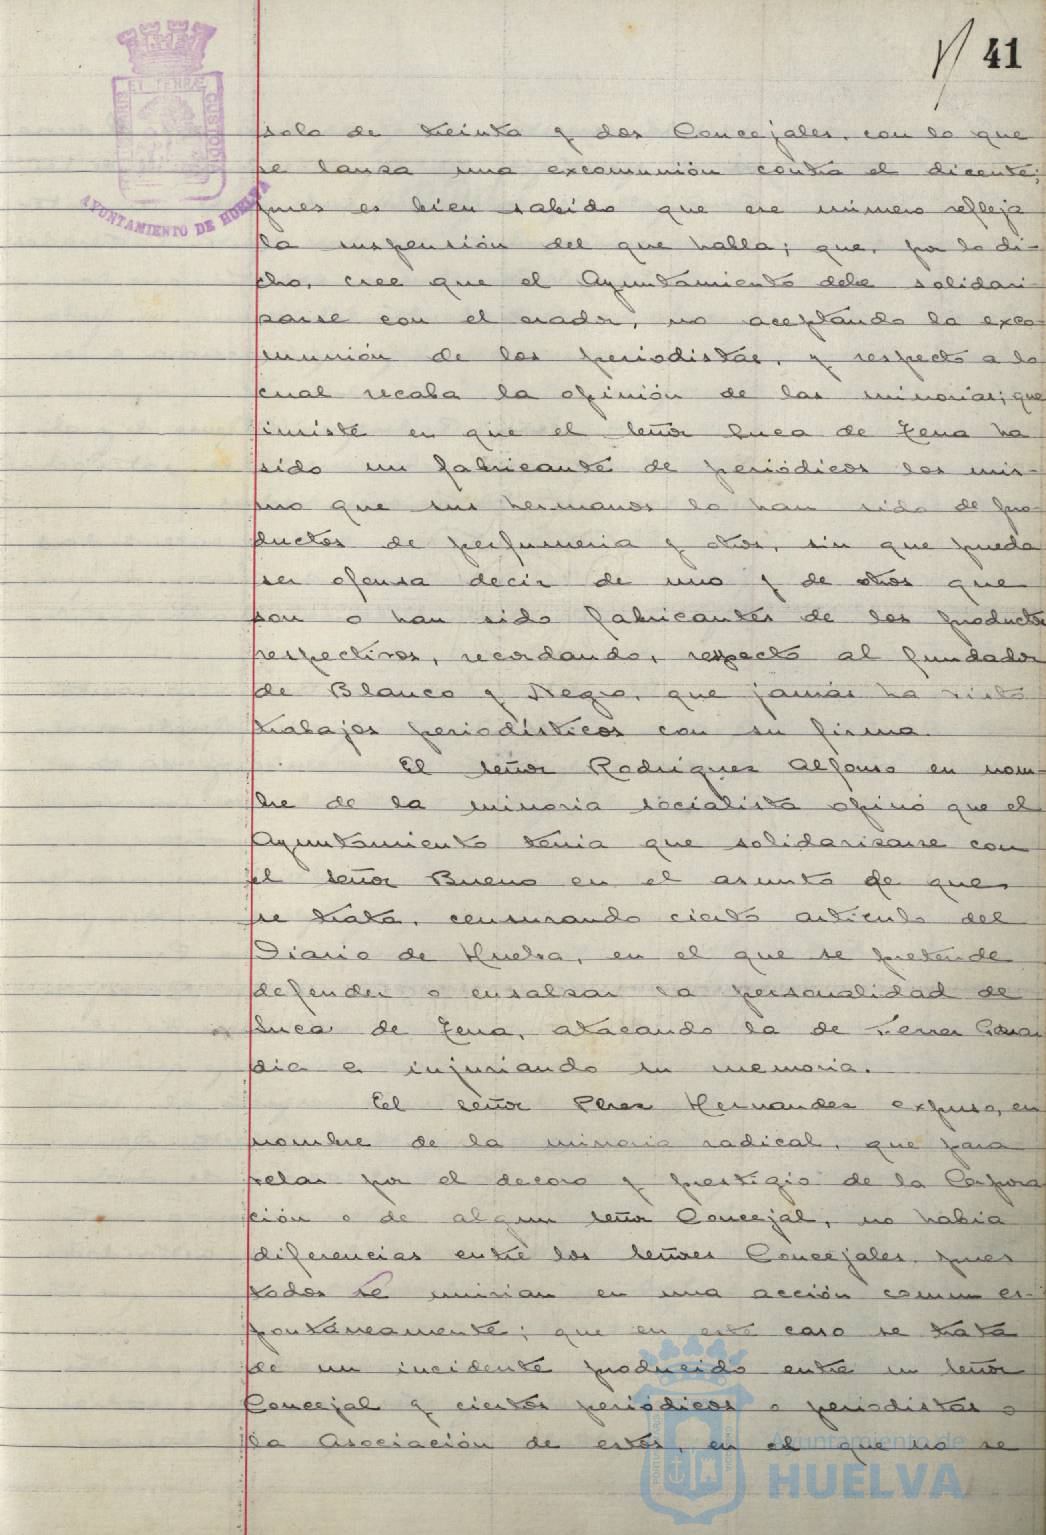 41
sola de treinta y dos Concejales, con lo que
se lanza una excomunión contra el dicente;
pues es bien sabido que ese número refleja
la suspensión del que habla; que, por lo di-
cho, cree que el Ayuntamiento debe solidari-
zarse con el orador, no aceptando la exco-
munión de los periodistas, y respecto a lo
cual recaba la opinión de las minorías; que
insiste en que el señor Luca de Tena ha
sido un fabricante de periódicos lo mis-
mo que sus hermanos lo han sido de pro-
ductos de perfumería y otros, sin que pueda
ser ofensa decir de uno y de otros que
son o han sido fabricantes de los productos
respectivos, recordando, respecto al fundador
de Blanco y Negro, que jamás ha visto
trabajos periodísticos con su firma.
El señor Rodríguez Alfonso en nom-
bre de la minoría socialista opinó que el
Ayuntamiento tenía que solidarizarse con
el señor Bueno en el asunto de que
se trata, censurando cierto artículo del
Diario de Huelva, en el que se pretende
defender o ensalzar la personalidad de
Luca de Tena, atacando la de Ferrer Guar
dia e injuriando su memoria.
El señor Pérez Hernandez expuso, en
nombre de la minoría radical, que para
velar por el decoro y prestigio de la Corpora
ción o de algun señor Concejal, no había
diferencias entre los señores Concejales, pues
todos se unirían en una acción comun es-
pontáneamente; que en este caso se trata
de un incidente producido entre un señor
Concejal y ciertos periódicos o periodistas o
la Asociación de estos, en el que no se
ET TERRAE CUSTODIA
AYUNTAMIENTO DE HUELVA
Ayuntamiento de
HUELVA